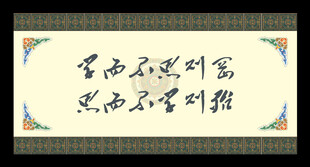 学而不思则罔
思而不学则殆